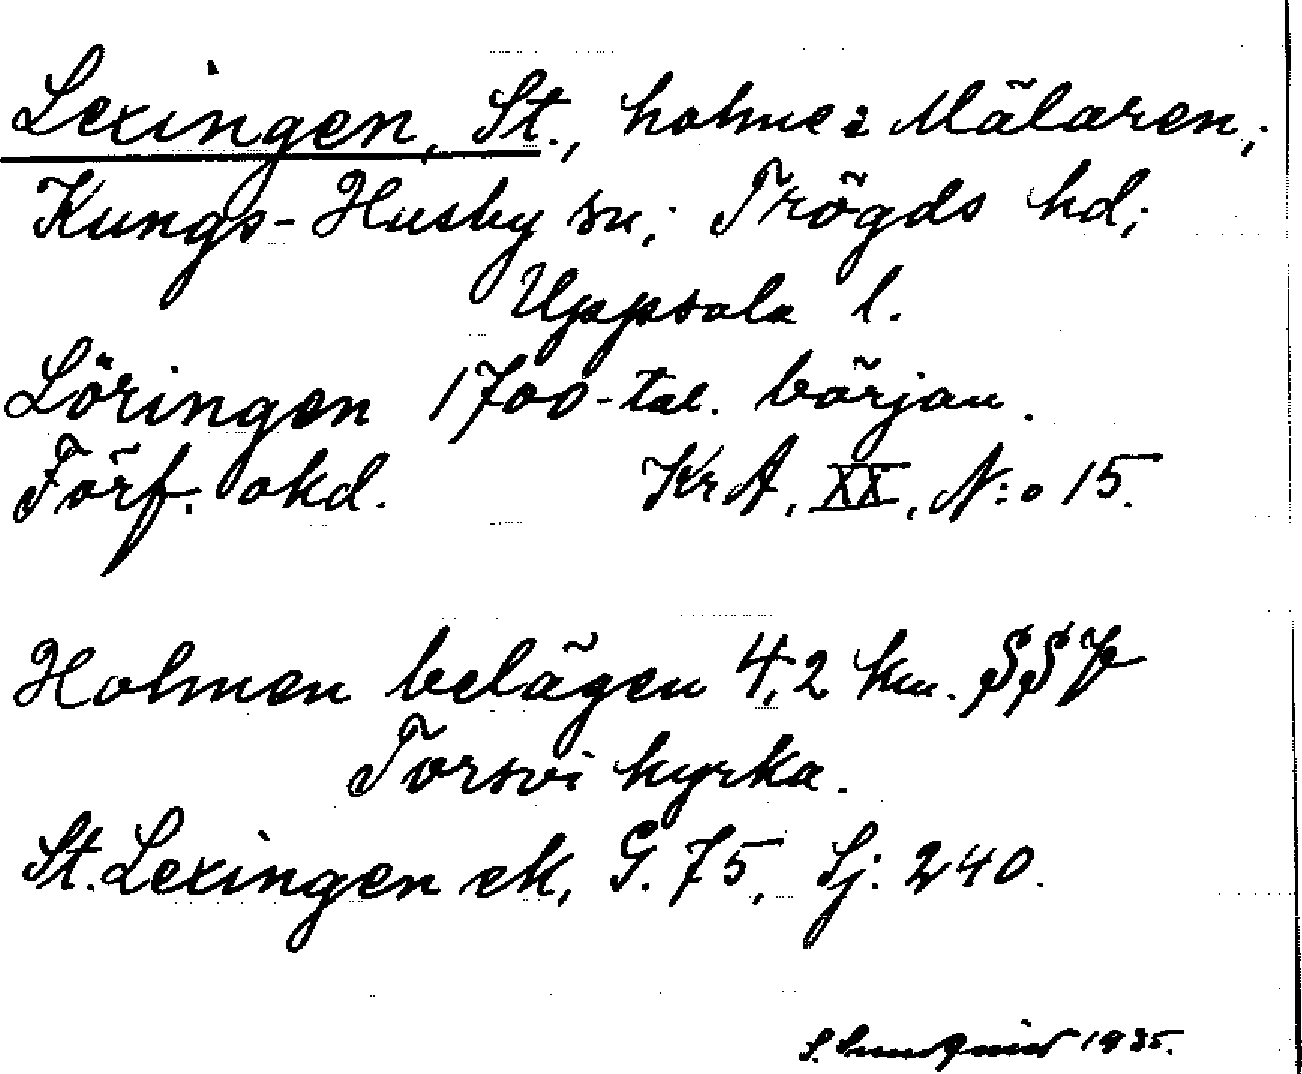 Lexingen, St., holme i Mälaren;
Kungs-Husby sn; Trögds hd;
Uppsala l.
Löringen 1700-tal. början.
Förf. okd. KrA, XX, N:o 15.
Holmen belägen 4,2 km. SSV
Torsvi kyrka.
St. Lexingen ek, G. 75, Sj. 240.
1935.